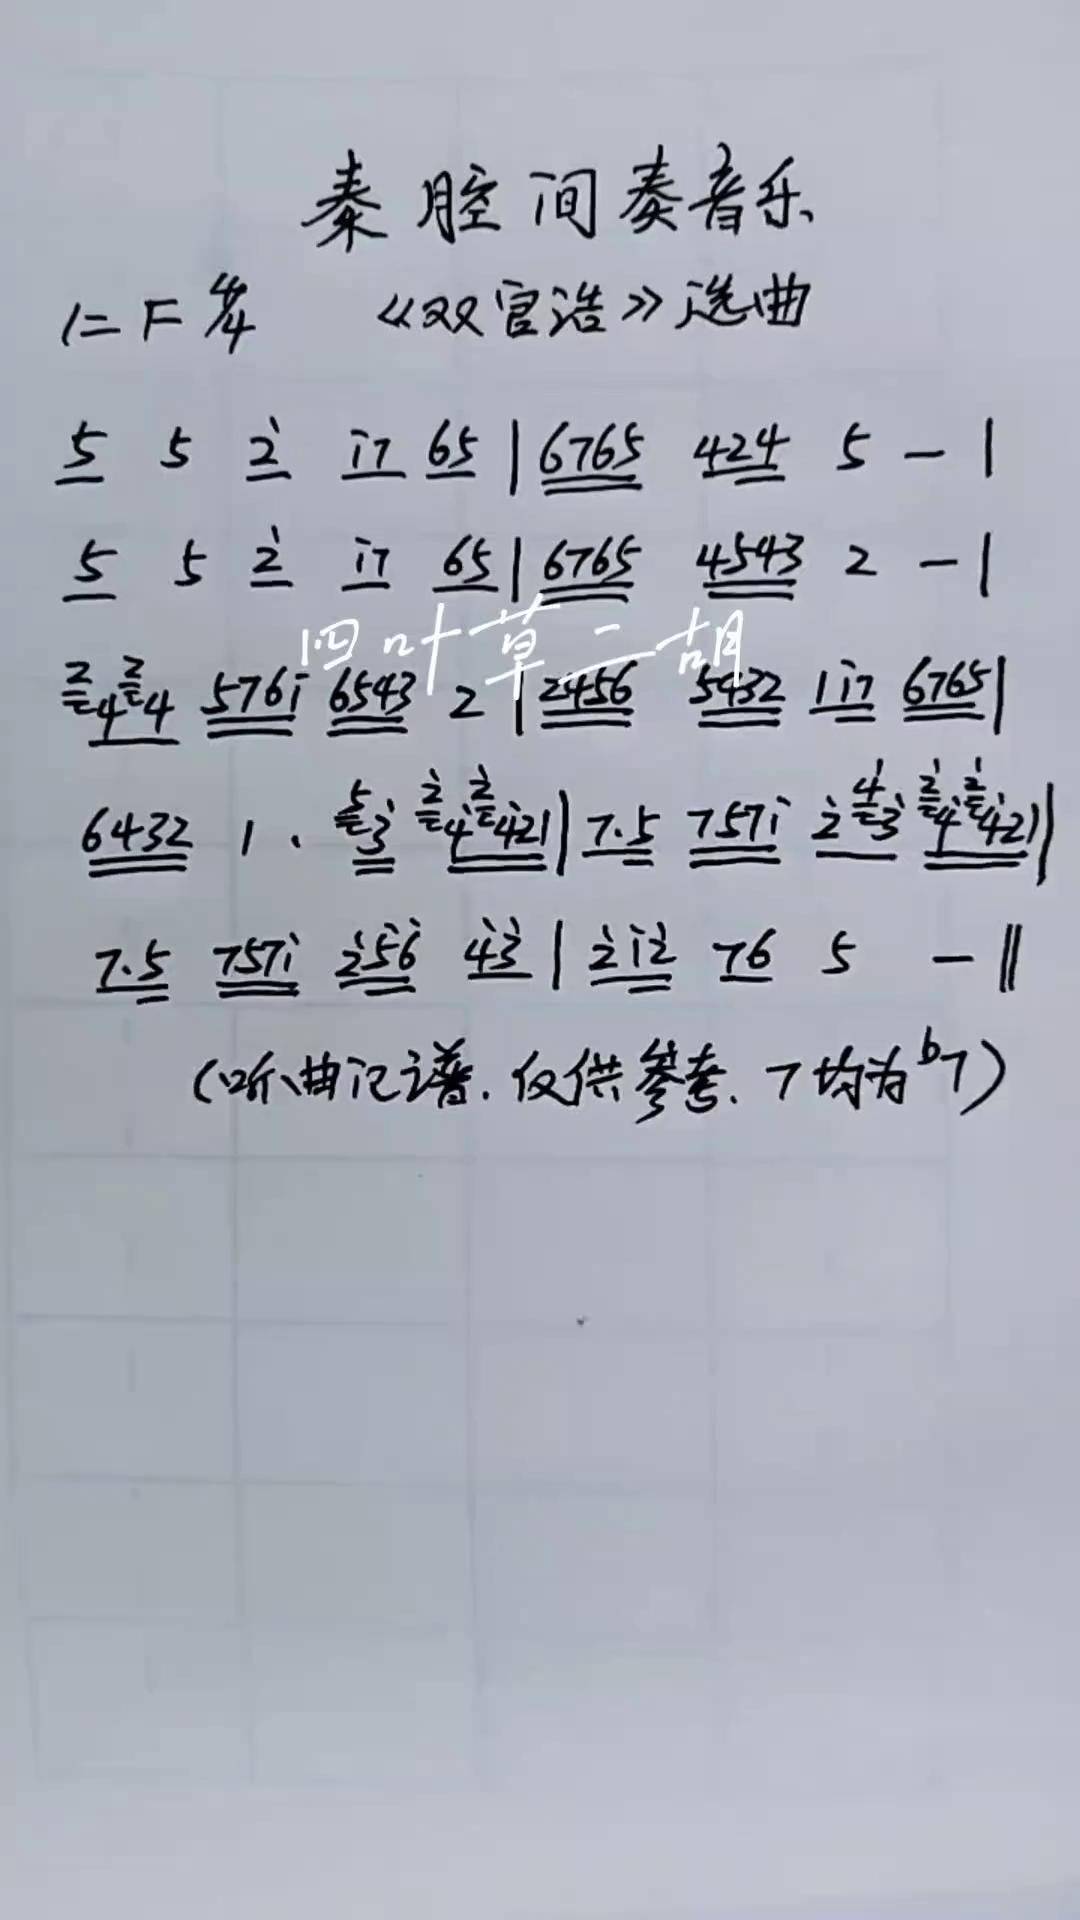 秦腔间奏音乐
1=F 4/4 《双官诰》选曲
5 5 2̇ 1̇7 65 | 6765 424 5 - |
5 5 2̇ 1̇7 65 | 6765 4543 2 - |
四叶草二胡
2 4 2 4 5761̇ 6543 2 | 2456 5432 11̇7 6765 |
6432 1 · 5̇ 3̇ 2̇ 4̇ 2̇ 4̇2̇1̇ | 7·5 7571̇ 2̇ 4̇ 3̇ 2̇ 4̇ 2̇ 4̇2̇1̇ |
7·5 7571̇ 2̇5̇6̇ 4̇3̇ | 2̇1̇2̇ 76 5 - ‖
(听曲记谱.仅供参考.7均为b7)